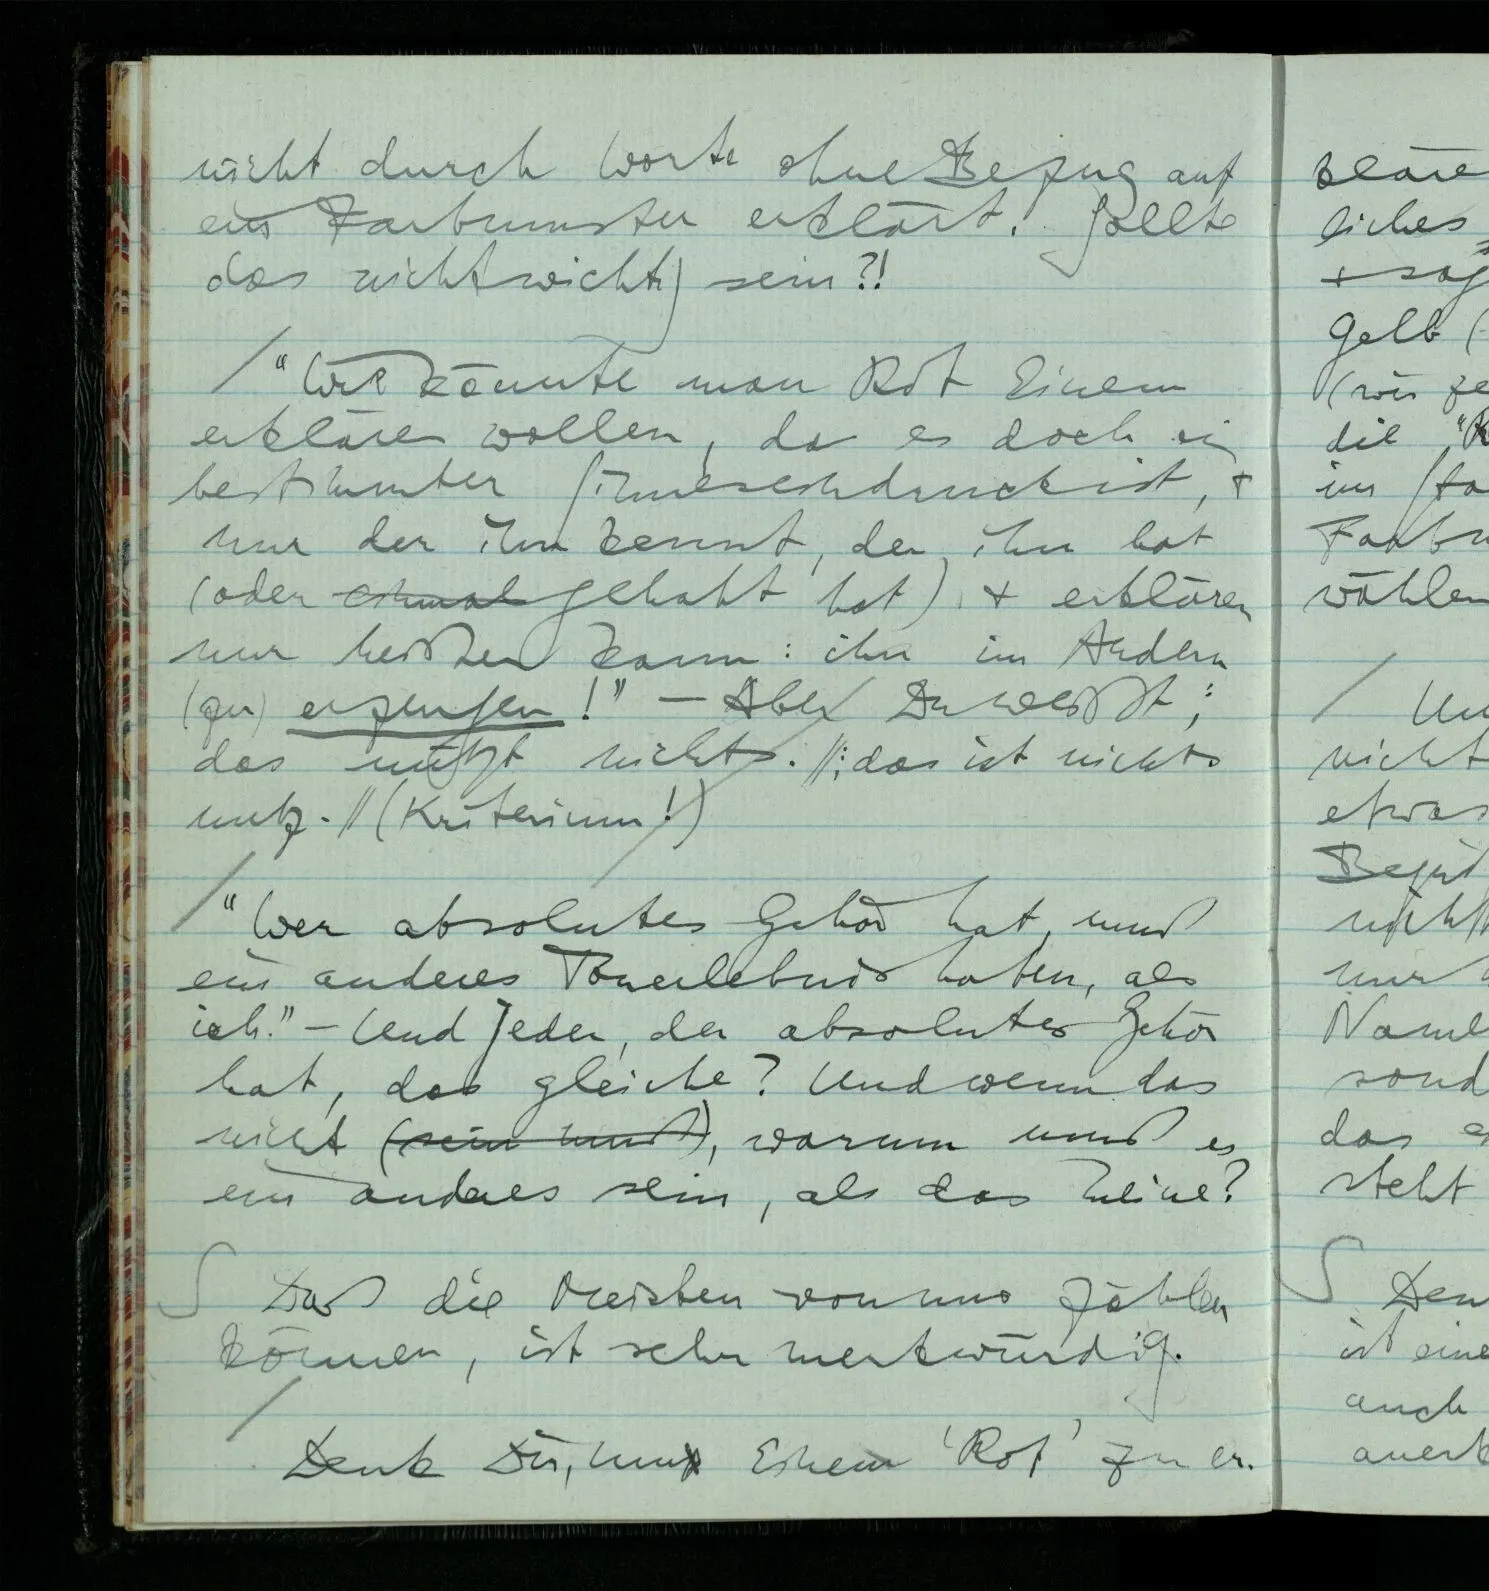 nicht durch Worte ohne Bezug auf
ein Farbmuster erklärt! Sollte
das nicht wichtig sein?!
/ "Wie könnte man Rot Einem
erklären wollen, da es doch ein
bestimmter Sinneseindruck ist, +
nur der ihn kennt, der ihn hat
(oder einmal gehabt hat), + erklären
nur heißen kann: ihn im Andern
(zu) erzeugen!" – Aber Du weißt,;
das nützt nichts. //; das ist nichts
nutz. // (Kriterium!)
/ "Wer absolutes Gehör hat, muß
ein anderes Tonerlebnis haben, als
ich." – Und jeder, der absolutes Gehör
hat, das gleiche? Und wenn das
nicht (sein muß), warum muß es
ein anderes sein, als das meine?
S Daß die Meisten von uns zählen
können, ist sehr merkwürdig.
/
Denk Dir, um Einem 'Rot' zu er-
kläre
liches
+ sag
Gelb (
(wir ze
die "R
im
Farbm
wählen
/
nicht
etwas
nicht
nur
Name
sond
das
steht
S Den
ist eine
auch
anerk